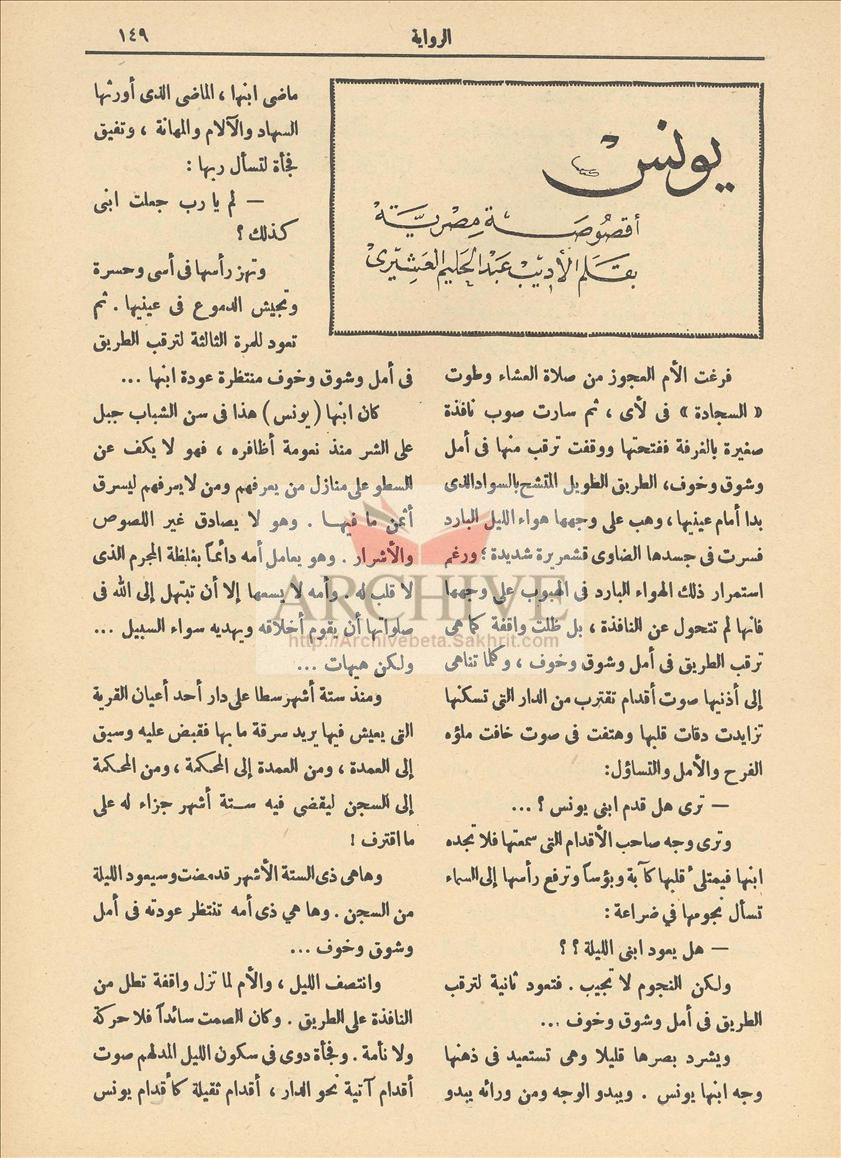 الرواية
١٤٩
يونس
أقصوصة مصرية
بقلم الأديب عبد الحليم العشيري
فرغت الأم العجوز من صلاة العشاء وطوت
« السجادة » فى لأى ، ثم سارت صوب نافذة
صغيرة بالغرفة ففتحتها ووقفت ترقب منها فى أمل
وشوق وخوف، الطريق الطويل المتشح بالسواد الذى
بدا أمام عينيها ، وهب على وجهها هواء الليل البارد
فسرت فى جسدها الضاوى قشعريرة شديدة ؛ ورغم
استمرار ذلك الهواء البارد فى الهبوب على وجهها
فانها لم تتحول عن النافذة ، بل ظلت واقفة كما هى
ترقب الطريق فى أمل وشوق وخوف ، وكلما تناهى
إلى أذنيها صوت أقدام تقترب من الدار التى تسكنها
تزايدت دقات قلبها وهتفت فى صوت خافت ملؤه
الفرح والأمل والتساؤل:
— ترى هل قدم ابنى يونس ؟ ...
وترى وجه صاحب الأقدام التى سمعتها فلا تجده
ابنها فيمتلىء قلبها كآبة وبؤساً وترفع رأسها إلى السماء
تسأل نجومها فى ضراعة :
— هل يعود ابنى الليلة ؟ ؟
ولكن النجوم لا تجيب . فتعود ثانية لترقب
الطريق فى أمل وشوق وخوف ...
ويشرد بصرها قليلا وهى تستعيد فى ذهنها
وجه ابنها يونس . ويبدو الوجه ومن ورائه يبدو
ماضى ابنها ، الماضى الذى أورثها
السهاد والآلام والمهانة ، وتفيق
فجأة لتسأل ربها :
— لم يا رب جعلت ابنى
كذلك ؟
وتهز رأسها فى أسى وحسرة
وتجيش الدموع فى عينيها . ثم
تعود للمرة الثالثة لترقب الطريق
فى أمل وشوق وخوف منتظرة عودة ابنها ...
كان ابنها ( يونس ) هذا فى سن الشباب جبل
على الشر منذ نعومة أظافره ، فهو لا يكف عن
السطو على منازل من يعرفهم ومن لا يعرفهم ليسرق
أثمن ما فيها . وهو لا يصادق غير اللصوص
والأشرار . وهو يعامل أمه دائماً بغلظة المجرم الذى
لا قلب له . وأمه لا يسعها إلا أن تبتهل إلى الله فى
صلواتها أن يقوم أخلاقه ويهديه سواء السبيل ...
ولكن هيهات ...
ومنذ ستة أشهر سطا على دار أحد أعيان القرية
التى يعيش فيها يريد سرقة ما بها فقبض عليه وسيق
إلى العمدة ، ومن العمدة إلى المحكمة ، ومن المحكمة
إلى السجن ليقضى فيه ستة أشهر جزاء له على
ما اقترف !
وها هى ذى الستة الأشهر قد مضت وسيعود الليلة
من السجن . وها هى ذى أمه تنتظر عودته فى أمل
وشوق وخوف ...
وانتصف الليل ، والأم لما تزل واقفة تطل من
النافذة على الطريق . وكان الصمت سائداً فلا حركة
ولا نأمة . وفجأة دوى فى سكون الليل المدلهم صوت
أقدام آتية نحو الدار ، أقدام ثقيلة كأقدام يونس
ARCHIVE
http://Archivebeta.Sakhrit.com